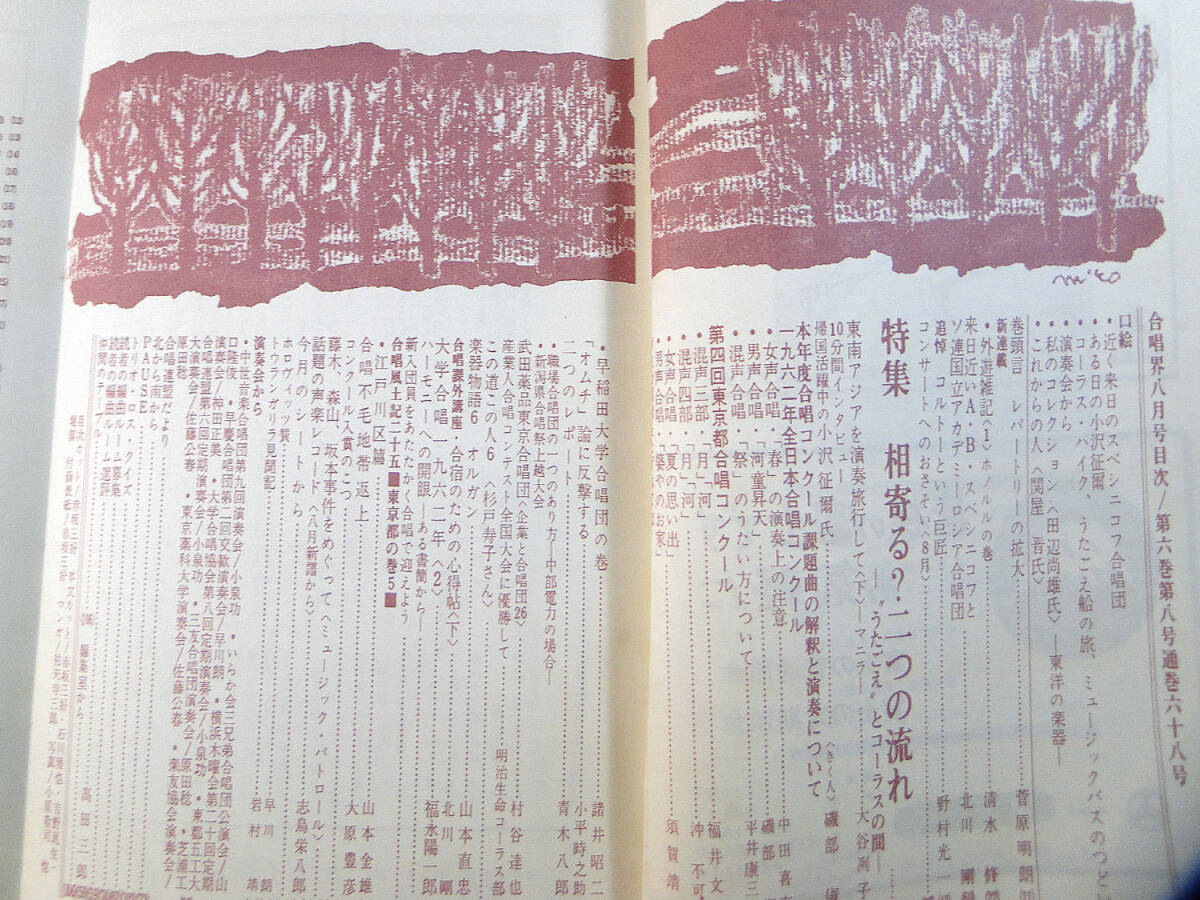 合唱界八月号目次/第六巻第八号通巻六十八号
口絵
・近く来日のスベシニコフ合唱団
・ある日の小沢征爾
・コーラス・ハイク、うたごえ船の旅、ミュージックバスのつど
・演奏会から
・私のコレクション〈田辺尚雄氏〉―東洋の楽器―
・これからの人〈関屋 晋氏〉
巻頭言 レパートリーの拡大 菅原明朗
新連載
・外遊雑記〈1〉ホノルルの巻 清水 脩
来日近いA・B・スベシニコフと
ソ連国立アカデミーロシア合唱団 北川 剛
追悼 コルトーという巨匠 野村光一
コンサートへのおさそい〈8月〉
特集 相寄る?二つの流れ
―“うたごえ”とコーラスの間―
東南アジアを演奏旅行して〈下〉―マニラ― 大谷冽子
10分間インタビュー
帰国活躍中の小沢征爾氏 〈きく人〉磯部
本年度合唱コンクール課題曲の解釈と演奏について
一九六二年全日本合唱コンクール
・女声合唱・「春」の演奏上の注意 中田喜
・男声合唱・「河童昇天」 磯部
・混声合唱・「祭」のうたい方について 平井康三
第四回東京都合唱コンクール
・混声三部・「月」「河」 福井文
・混声四部・「月」「河」 沖 不可
・女声合唱・「夏の思い出」
・男声合唱・「婆やのお家」 須賀靖
・早稲田大学合唱団の巻 諸井昭二
「オムチ」論に反撃する 小平時之助
二つのレポート 青木八郎
・職場合唱団の一つのあり方―中部電力の場合―
・新潟県合唱祭上越大会
武田薬品東京合唱団〈企業と合唱団26〉 村谷達也
産業人合唱コンテスト全国大会に優勝して 明治生命コーラス部
この道この人6 〈杉戸寿子さん〉
楽器物語6 オルガン 山本直忠
合唱課外講座・合宿のための心得帖〈下〉
大学合唱一九六二年〈2〉 北川 剛
ハーモニーへの開眼―ある書簡から― 福永陽一郎
新入団員をあたたかく合唱で迎えよう
合唱風土記二十五■東京都の巻5■
・江戸川区篇
合唱不毛地帯返上 山本金雄
コンクール入賞のこつ 大原豊彦
藤木、森山、坂本事件をめぐって〈ミュージック・パトロール〉
話題の声楽レコード〈八月新譜から〉
今月のシートから 志鳥栄八郎
ホロヴィッツ賛
トゥランガリラ見聞記 早川 朗
演奏会から 岩村 靖
・中世音楽合唱団第九回演奏会/小泉功 ・いらか会三兄弟合唱団公演会/山
口隆俊 ・早慶合唱団第二回交歓演奏会/早川朗 ・横浜木曜会第二十回定期
演奏会/神田正美 ・大学合唱協会第八回定期演奏会/小泉功 ・東都五工大
合唱連盟第六回定期演奏会/小泉功 ・二友合唱団演奏会/原田稔 ・芝浦工
大演奏会/佐藤公春 ・東京薬科大学演奏会/佐藤公春 ・楽友協会演奏会/
原田稔
合唱連盟だより
北から南から
PAUSE
トリオ・ロス・クイズ
読者の編曲ルーム募集
読者の編曲ルーム選評
仲間のテーブル
編集室から 高田三郎